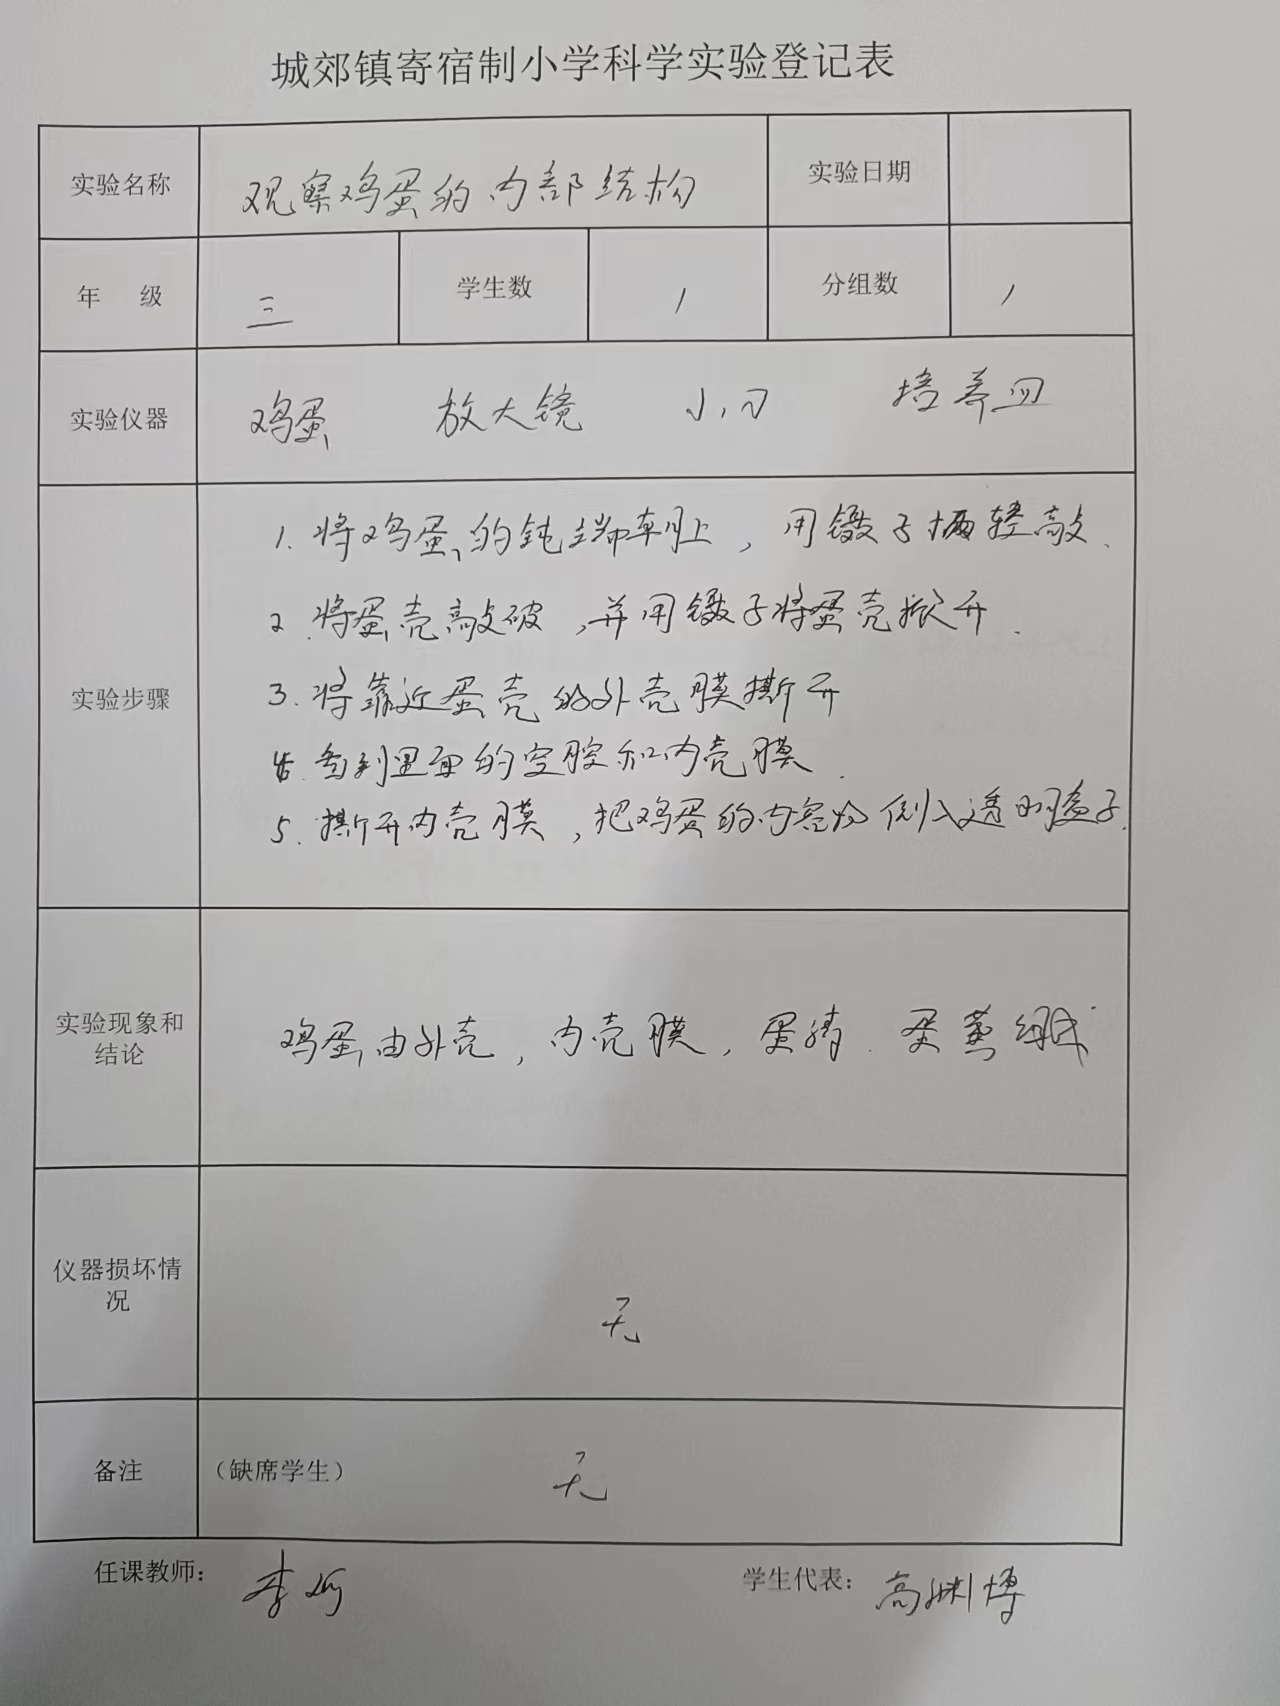 城郊镇寄宿制小学科学实验登记表
实验名称 观察鸡蛋的内部结构 实验日期
年 级 三 学生数 1 分组数 1
实验仪器 鸡蛋 放大镜 小刀 培养皿
实验步骤
1. 将鸡蛋的钝端朝上，用镊子轻敲.
2. 将蛋壳敲破，并用镊子将蛋壳拨开.
3. 将靠近蛋壳的外壳膜撕开
4. 看到里面的空腔和内壳膜.
5. 撕开内壳膜，把鸡蛋的内容物倒入透明盒子.
实验现象和
结论
鸡蛋由外壳，内壳膜，蛋清. 蛋黄组成
仪器损坏情
况
无
备注 （缺席学生） 无
任课教师： 李 学生代表： 高渊博